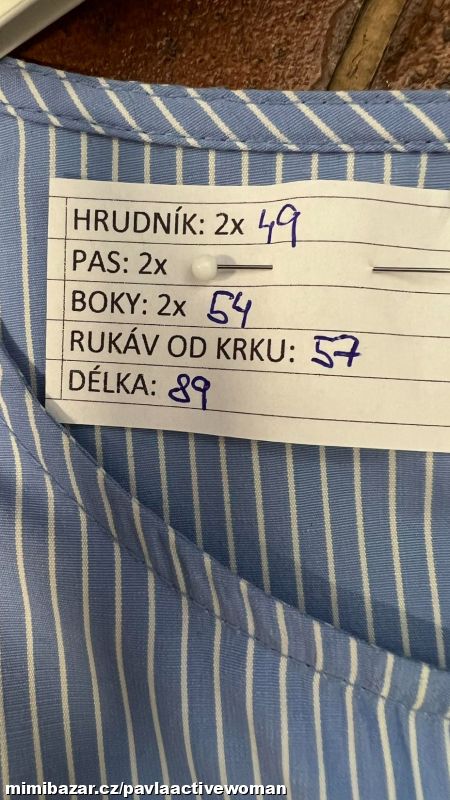 HRUDNÍK: 2x 49
PAS: 2x
BOKY: 2x 54
RUKÁV OD KRKU: 57
DÉLKA: 89
mimibazar.cz/pavlaactivewoman